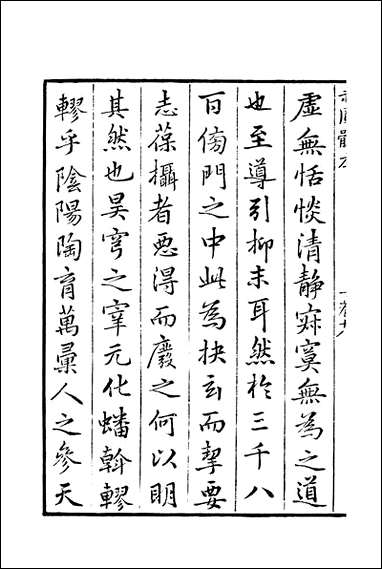 虛無恬惔清靜寂寞無為之道
也至導引抑末耳然於三千八
百傍門之中此為抉玄而挈要
志葆攝者惡得而廢之何以明
其然也昊穹之宰元化蟠斡轇
轇乎陰陽陶育萬彙人之參天